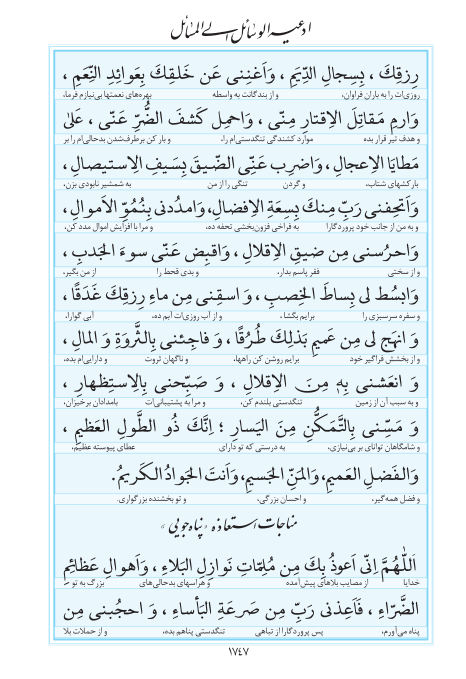 ادعیـه الوسائل الے المسائل
رِزقِكَ ، بِسِجالِ الدِّيَمِ ، وَاَغنِنى عَن خَلقِكَ بِعَوائِدِ النِّعَمِ ،
روزی‌ات را به باران فراوان، و از بندگانت به واسطه بهره‌های نعمتها بی‌نیازم فرما،
وَارمِ مَقاتِلَ الاِقتارِ مِنّى ، وَاحمِل كَشفَ الضُّرِّ عَنّى ، عَلىٰ
و هدف تیر قرار بده موارد کشندگی تنگدستی‌ام را، و بار کن برطرف‌شدن بدحالی‌ام را بر
مَطايَا الاِعجالِ ، وَاضرِب عَنِّى الضّيقَ بِسَيفِ الاِستيصالِ ،
بارکشهای شتاب، و گردن تنگی را از من به شمشیر نابودی بزن،
وَاَتحِفنى رَبِّ مِنكَ بِسِعَةِ الاِفضالِ، وَامدُدنى بِنُمُوِّ الاَموالِ ،
و به من از جانب خود پروردگارا به فراخی فزون‌بخشی تحفه ده، و مرا با افزایش اموال مدد کن،
وَاحرُسنى مِن ضيقِ الاِقلالِ ، وَاقبِض عَنّى سوءَ الجَدبِ ،
و از سختی فقر پاسم بدار، و بدی قحط را از من بگیر،
وَابسُط لى بِساطَ الخِصبِ ، وَ اسقِنى مِن ماءِ رِزقِكَ غَدَقًا ،
و سفره سرسبزی را برایم بگشا، و از آب روزی‌ات آبم ده، آبی گوارا،
وَ انهَج لى مِن عَميمِ بَذلِكَ طُرُقًا ، وَ فاجِئنى بِالثَّروَةِ وَ المالِ ،
و از بخشش فراگیر خود برایم روشن کن راهها، و ناگهان ثروت و دارایی‌ام بده،
وَ انعَشنى بِهٖ مِنَ الاِقلالِ ، وَ صَبِّحنى بِالاِستِظهارِ ،
و به سبب آن از زمین تنگدستی بلندم کن، و مرا به پشتیبانی‌ات بامدادان برخیزان،
وَ مَسِّنى بِالتَّمَكُّنِ مِنَ اليَسارِ ؛ اِنَّكَ ذُو الطَّولِ العَظيمِ ،
و شامگاهان توانای بر بی‌نیازی، به درستی که تو دارای عطای پیوسته عظیم،
وَالفَضلِ العَميمِ، وَالمَنِّ الجَسيمِ، وَاَنتَ الجَوادُ الكَريمُ.
و فضل همه‌گیر، و احسان بزرگی، و تو بخشنده بزرگواری.
مناجات استعاذه «پناه‌جویی»
اَللّٰهُمَّ اِنّى اَعوذُ بِكَ مِن مُلِمّاتِ نَوازِلِ البَلاءِ ، وَاَهوالِ عَظائِمِ
خدایا از مصایب بلاهای پیش‌آمده و هراسهای بدحالی‌های بزرگ به تو
الضَّرّاءِ ، فَاَعِذنى رَبِّ مِن صَرعَةِ البَأساءِ ، وَ احجُبنى مِن
پناه می‌آورم، پس پروردگارا از تباهی تنگدستی پناهم بده، و از حملات بلا
۱۷۴۷